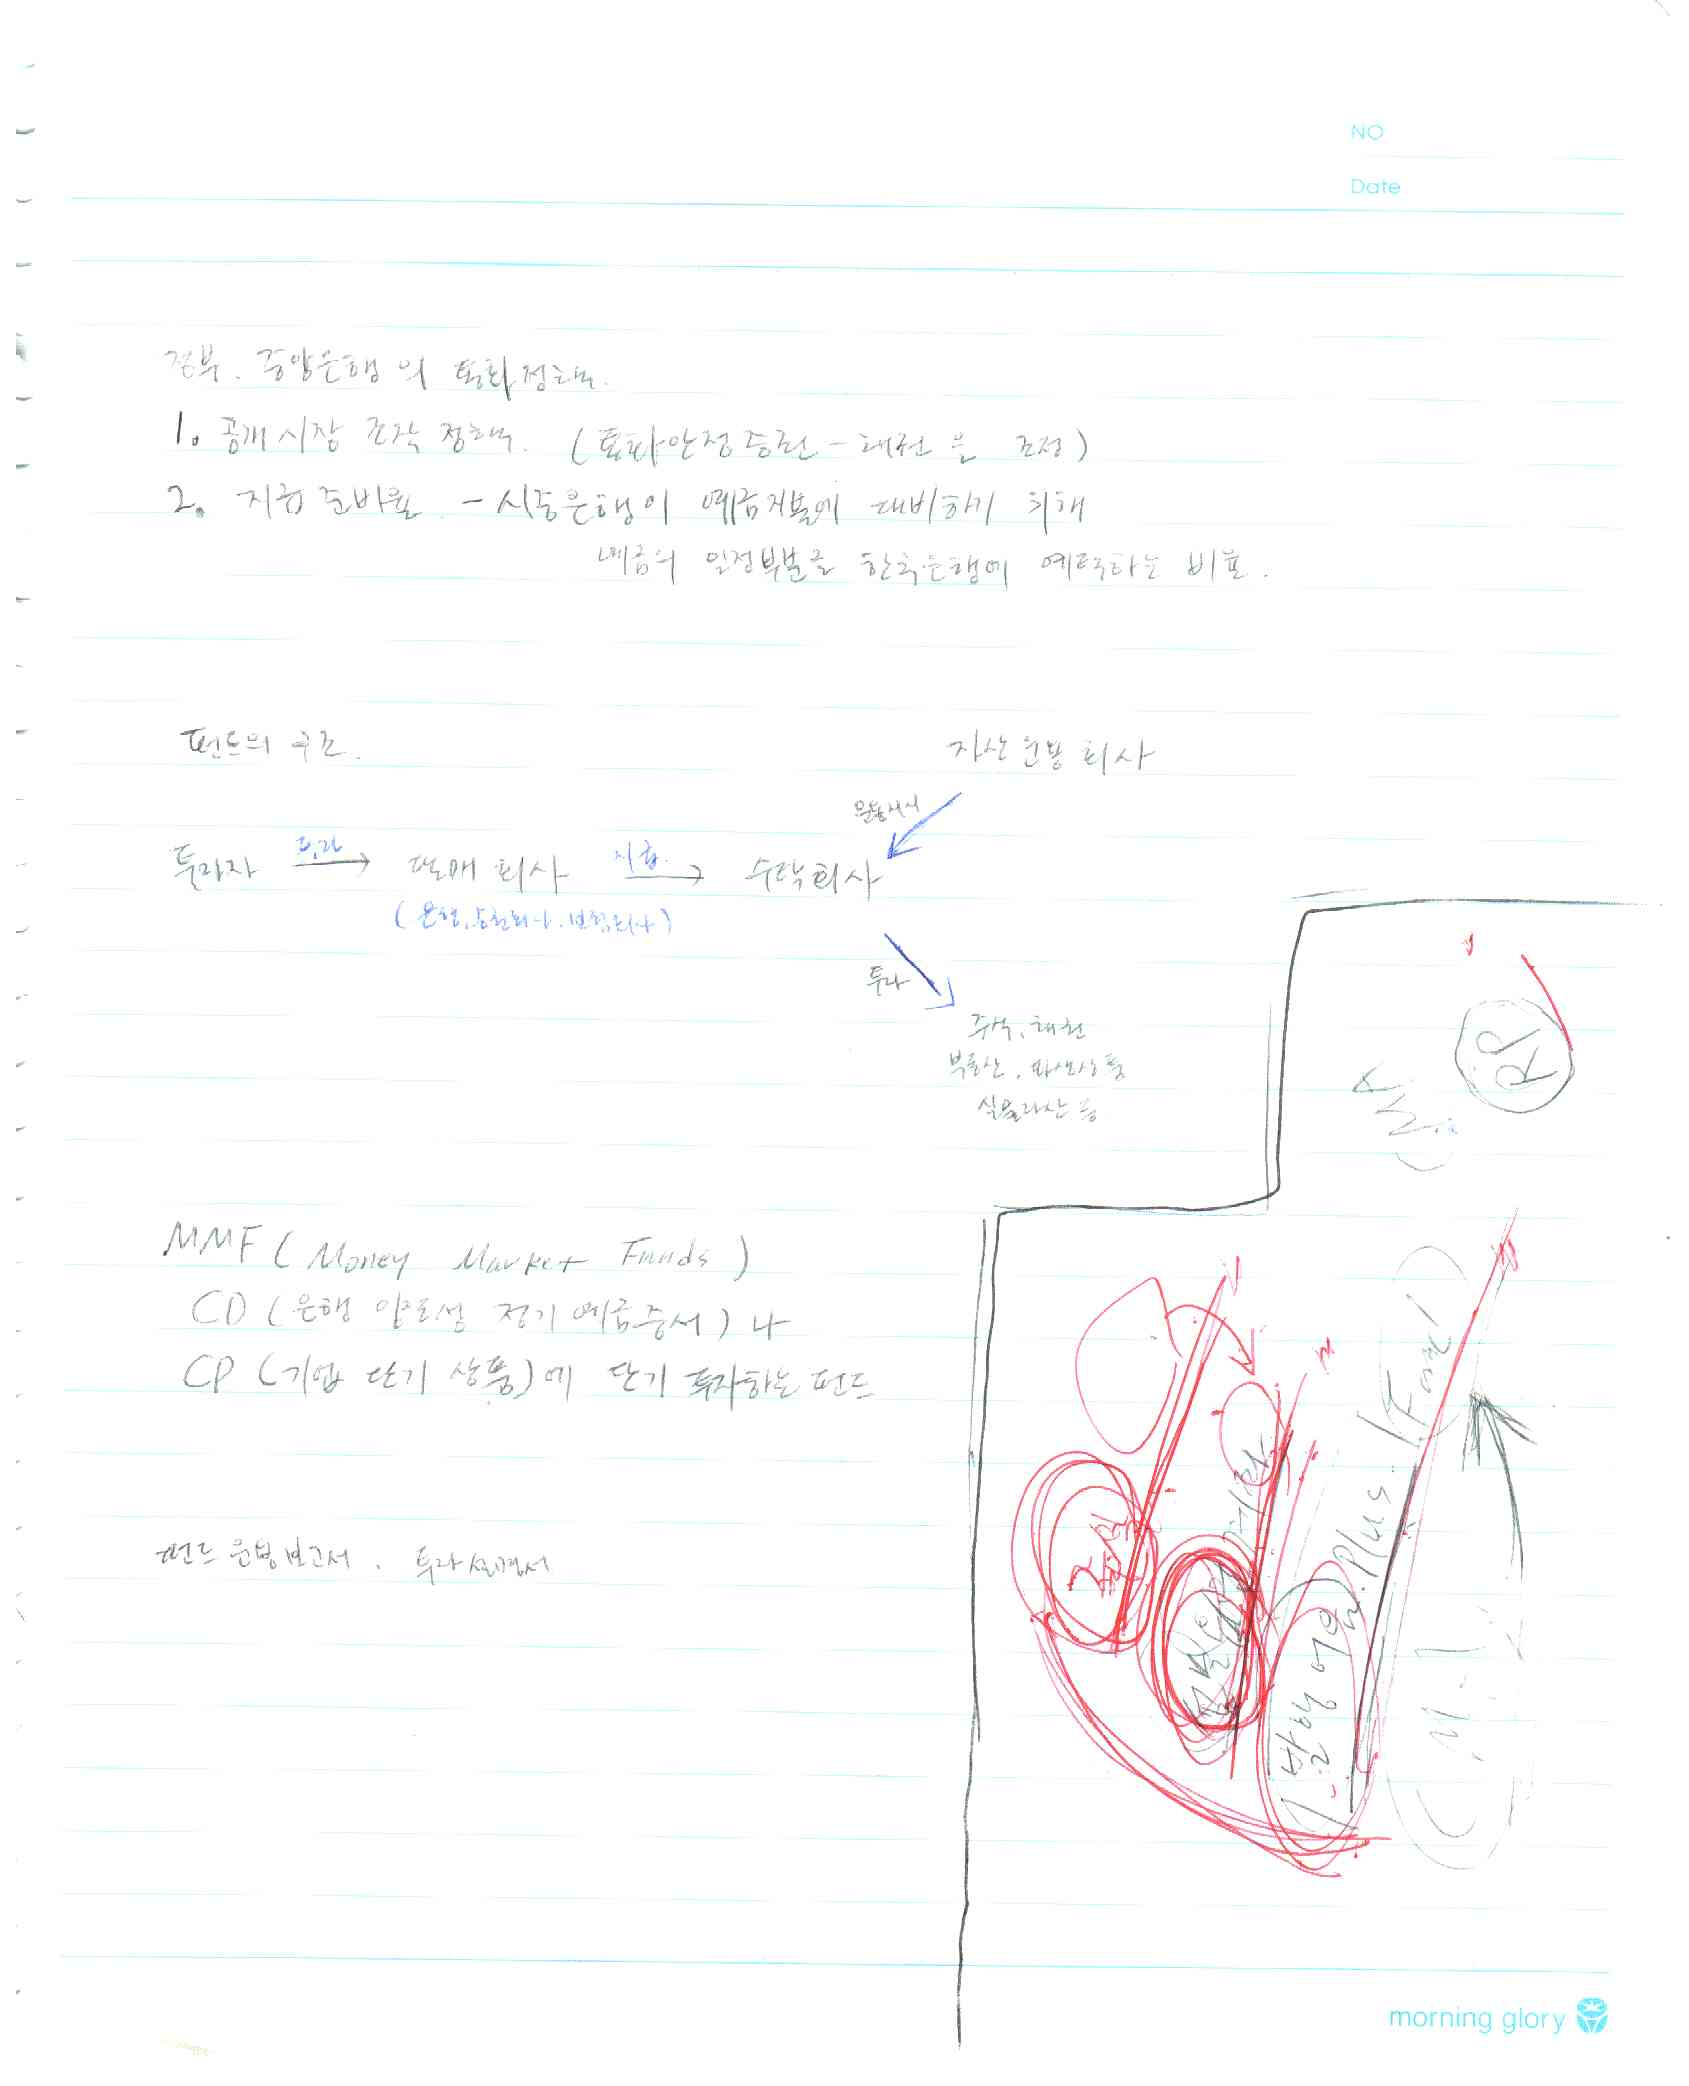 NO
Date
정부. 중앙은행의 통화정책.
1. 공개시장 조작 정책. (통화안정증권 - 채권을 조정)
2. 지급준비율 - 시중은행이 예금지불에 대비하기 위해
예금의 일정부분을 한국은행에 예탁하는 비율.
펀드의 구조.
자산운용회사
운용지시
투자자 투자 판매회사 지급. 수탁회사
(은행, 증권회사, 보험회사)
투자
주식, 채권
부동산, 파생상품
실물자산 등
RP
MMF (Money Market Funds)
CD (은행 양도성 정기예금증서)나
CP (기업 단기 상품)에 단기 투자하는 펀드
펀드 운용보고서. 투자설명서
주식
발행어음. Plus.
morning glory